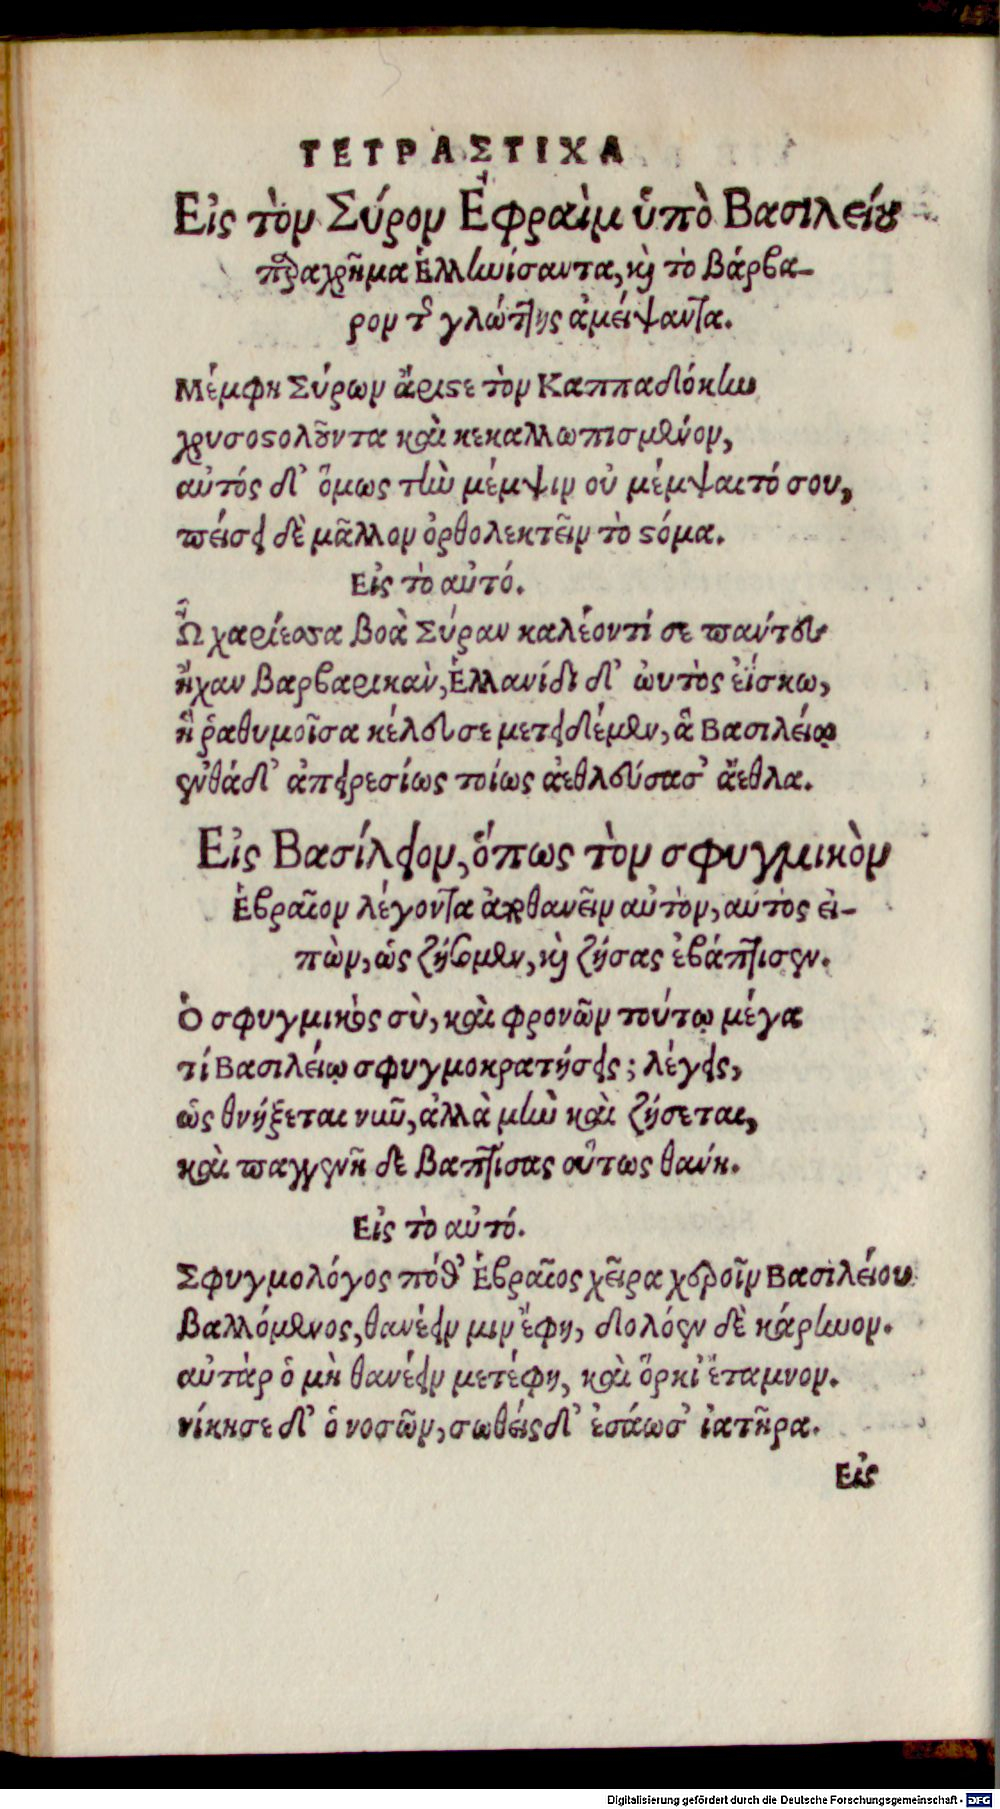 ΤΕΤΡΑΣΤΙΧΑ
Εἰς τὸν Σύρον Ἐφραὶμ ὑπὸ Βασιλείου
παραχρῆμα Ἑλληνίσαντα, καὶ τὸ Βάρβα-
ρον τῆς γλώττης ἀμείψαντα.
Μέμφη Σύρων ἄριστε τὸν Καππαδόκην
χρυσοστολοῦντα καὶ κεκαλλωπισμένον,
αὐτός δ' ὅμως τὴν μέμψιν οὐ μέμψαιτό σου,
πείσει δὲ μᾶλλον ὀρθολεκτεῖν τὸ στόμα.
Εἰς τὸ αὐτό.
Ὦ χαρίεσσα βοὰ Σύραν καλέοντί σε πάντες
ἦχαν βαρβαρικὰν, Ἑλλανίδι δ' ὡυτὸς ἐΐσκω,
ἢ ῥαθυμοῖσα κέλευσε μετειδέμεν, ἃ Βασιλείῳ
ἐνθάδ' ἀπειρεσίως τοίως ἀεθλεύσασ' ἄεθλα.
Εἰς Βασίλειον, ὅπως τὸν σφυγμικὸν
Ἑβραῖον λέγοντα ἀποθανεῖν αὐτὸν, αὐτὸς εἰ-
πὼν, ὡς ζήσομεν, καὶ ζήσας ἐβάπτισεν.
Ὁ σφυγμικός σὺ, καὶ φρονῶν τούτῳ μέγα
τί Βασιλείῳ σφυγμοκρατήσεις; λέγεις,
ὡς θνήξεται νῦν, ἀλλὰ μὴν καὶ ζήσεται,
καὶ παγγενῆ δε βαπτίσας οὕτως θανῆ.
Εἰς τὸ αὐτό.
Σφυγμολόγος πόθ' Ἑβραῖος χεῖρα χεροῖν Βασιλείου
Βαλλόμενος, θανέειν μιν ἔφη, διολόεν δὲ κάρηνον.
αὐτὰρ ὁ μὴ θανέειν μετέφη, καὶ ὅρκι' ἔταμνον.
νίκησε δ' ὁ νοσῶν, σωθείς δ' ἐσάωσ' ἰατῆρα.
Εἰς
Digitalisierung gefördert durch die Deutsche Forschungsgemeinschaft - DFG